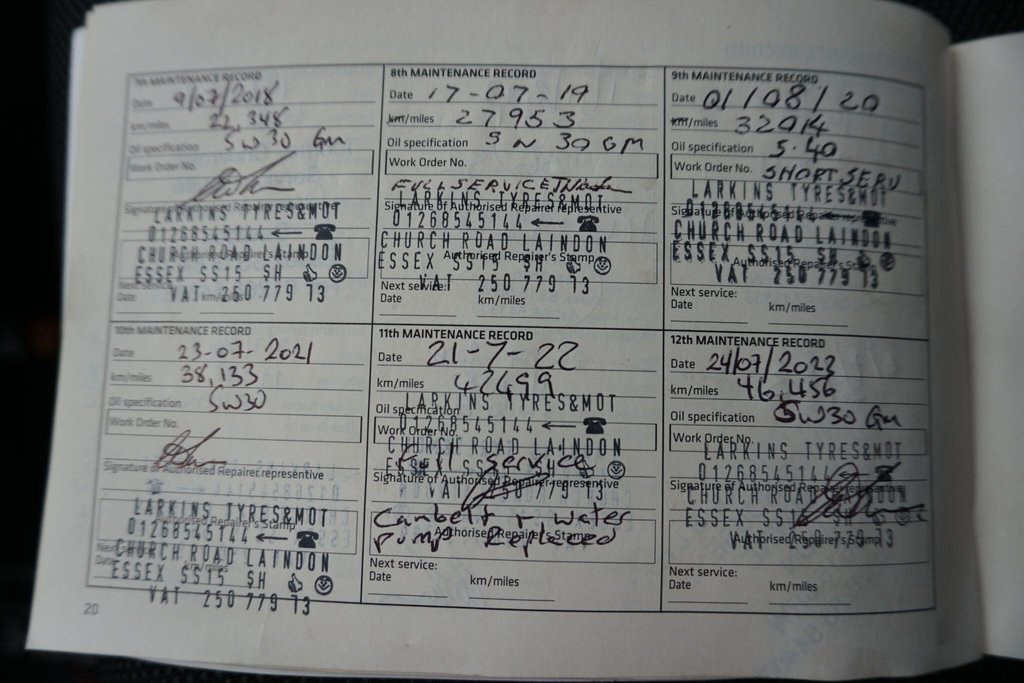 7th MAINTENANCE RECORD
Date 9/07/2018
km/miles 22,348
Oil specification 5W30 GM
Work Order No.
Signature of Authorised Repairer representive
LARKINS TYRES&MOT
01268545144 ← ☎
CHURCH ROAD LAINDON
Authorised Repairer's Stamp
ESSEX SS15 SH
Next service:
VAT 250 779 13
Date km/miles
8th MAINTENANCE RECORD
Date 17-07-19
km/miles 27953
Oil specification 5W 30 GM
Work Order No.
FULL SERVICE
LARKINS TYRES&MOT
Signature of Authorised Repairer representive
01268545144 ← ☎
CHURCH ROAD LAINDON
Authorised Repairer's Stamp
ESSEX SS15 SH
VAT 250 779 13
Next service:
Date km/miles
9th MAINTENANCE RECORD
Date 01/08/20
km/miles 32014
Oil specification 5.40
Work Order No. SHORT SERV
LARKINS TYRES&MOT
Signature of Authorised Repairer representive
01268545144
CHURCH ROAD LAINDON
ESSEX SS15 SH
Authorised Repairer's Stamp
VAT 250 779 13
Next service:
Date km/miles
10th MAINTENANCE RECORD
Date 23-07-2021
km/miles 38,133
Oil specification 5W30
Work Order No.
Signature of Authorised Repairer representive
LARKINS TYRES&MOT
Authorised Repairer's Stamp
01268545144 ← ☎
CHURCH ROAD LAINDON
km/miles
ESSEX SS15 SH
VAT 250 779 13
11th MAINTENANCE RECORD
Date 21-7-22
km/miles 42499
LARKINS TYRES&MOT
Oil specification
01268545144 ← ☎
Work Order No.
CHURCH ROAD LAINDON
Full Service
ESSEX SS15 SH
Signature of Authorised Repairer representive
VAT 250 779 13
Cambelt + water
pump Replaced
Authorised Repairer's Stamp
Next service:
Date km/miles
12th MAINTENANCE RECORD
Date 24/07/2023
km/miles 46,456
Oil specification 5W30 GM
Work Order No.
LARKINS TYRES&MOT
01268545144
Signature of Authorised Repairer representive
CHURCH ROAD LAINDON
ESSEX SS15 SH
Authorised Repairer's Stamp
VAT 250 779 13
Next service:
Date km/miles
20